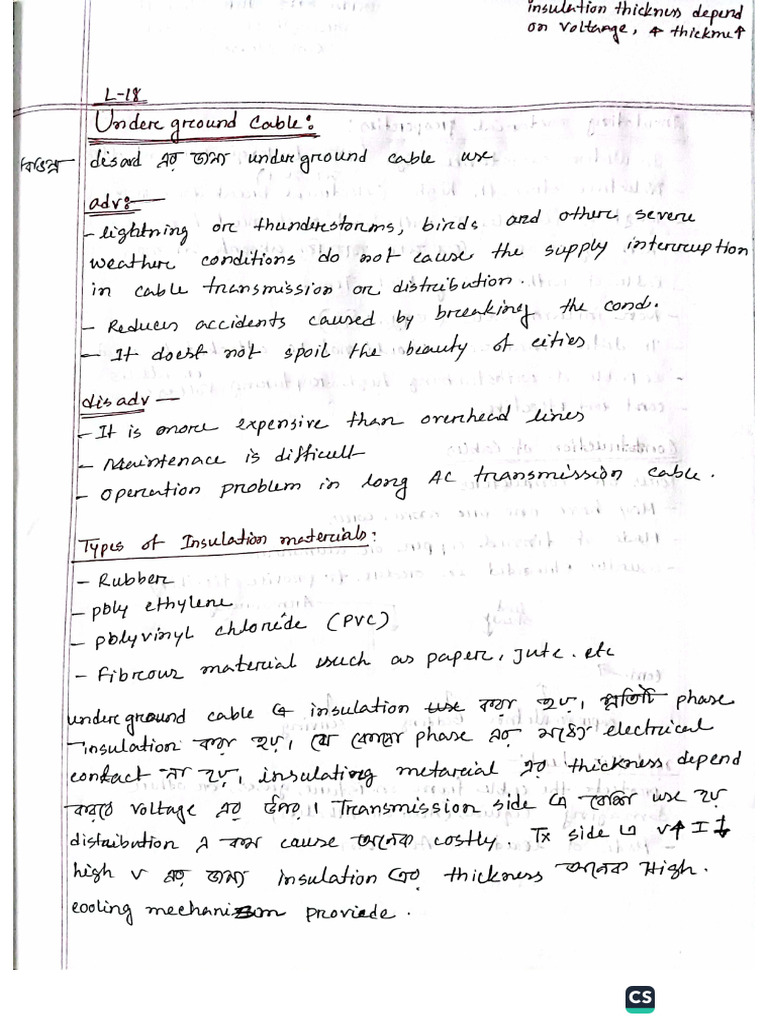 insulation thickness depend
on voltange, ↑ thickme↑
L-18
Under ground Cable:
disad এর জন্য under ground cable use
adv:—
- lightning or thunderstorms, birds and other severe
weather conditions do not cause the supply interruption
in cable transmission or distribution.
- Reduces accidents caused by breaking the cond.
- It doest not spoil the beauty of cities
disadv —
- It is more expensive than overhead lines
- Maintenace is difficult
- operation problem in long AC transmission cable.
Types of Insulation materials:
- Rubber
- poly ethylene
- polyvinyl chloride (PVC)
- Fibrous material such as paper, Jute. etc
under ground cable এ insulation use করা হয়। প্রতিটি phase
insulation করা হয়। যে কোনো phase এর মধ্যে electrical
contact না হয়। insulating metarial এর thickness depend
করবে voltage এর উপর। Transmission side এ use হয়
distribution এ কম cause অনেক costly. Tx side এ V↑ I↓
high V এর জন্য insulation এর thickness অনেক High.
cooling mechanism provide.
CS